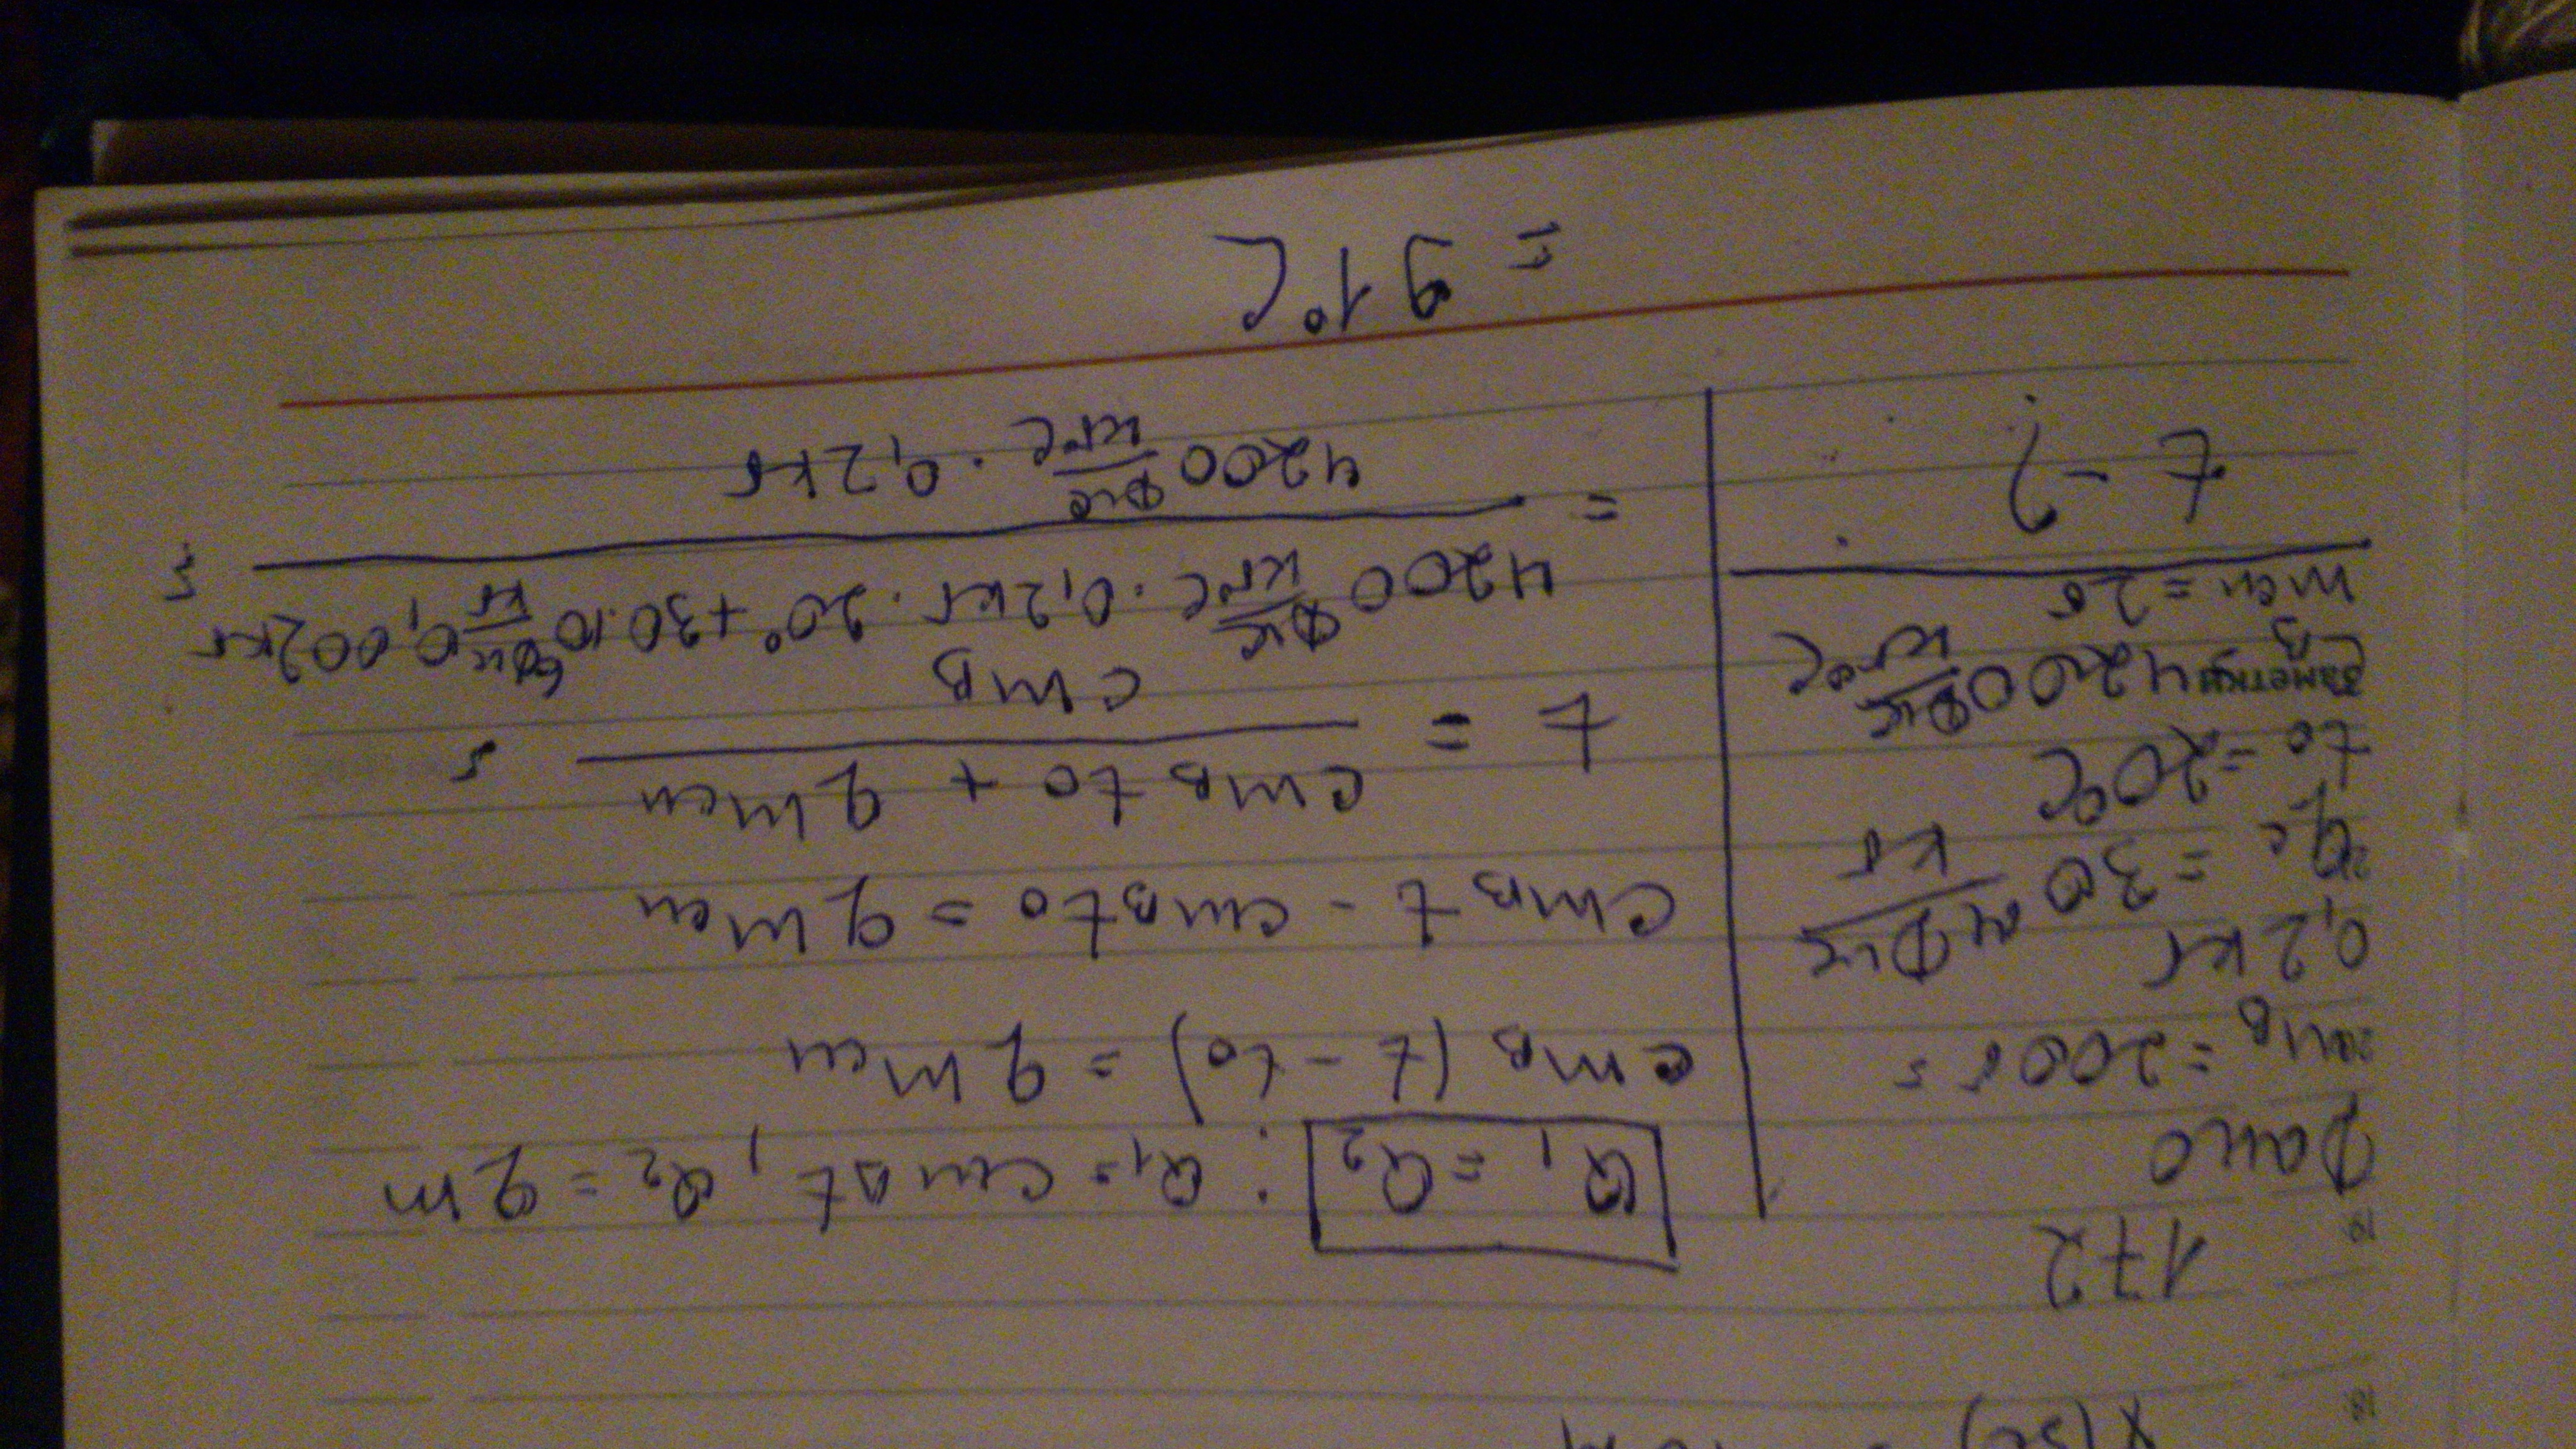 172
Дано
mв = 200г =
0,2 кг
qс = 30 МДж/кг
t0 = 20°C
Заметки
Cв 4200 Дж/кг°C
mсп = 2г
t - ?
Q1 = Q2 : Q1 = cmΔt, Q2 = qm
cmв (t - t0) = qmсп
cmв t - cmв t0 = qmсп
t = (cmв t0 + qmсп) / cmв =
(4200 Дж/кг°C · 0,2кг · 20° + 30·10⁶ Дж/кг · 0,002кг) /
= 4200 Дж/кг°C · 0,2кг =
= 91°C